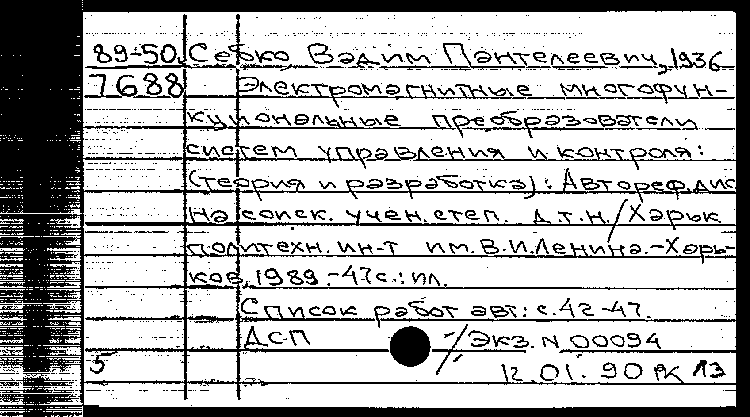 89-50. Себко Вадим Пантелеевич, 1936
7688 Электромагнитные многофун-
кциональные преобразователи
систем управления и контроля:
(теория и разработка): Автореф. дис
на соиск. учен. степ. д.т.н./Харьк
политехн. ин-т им. В.И.Ленина.-Харь-
ков, 1989.-47с.: ил.
Список работ авт: с. 42-47.
ДСП /Экз. N 00094
5
12.01.90 РК